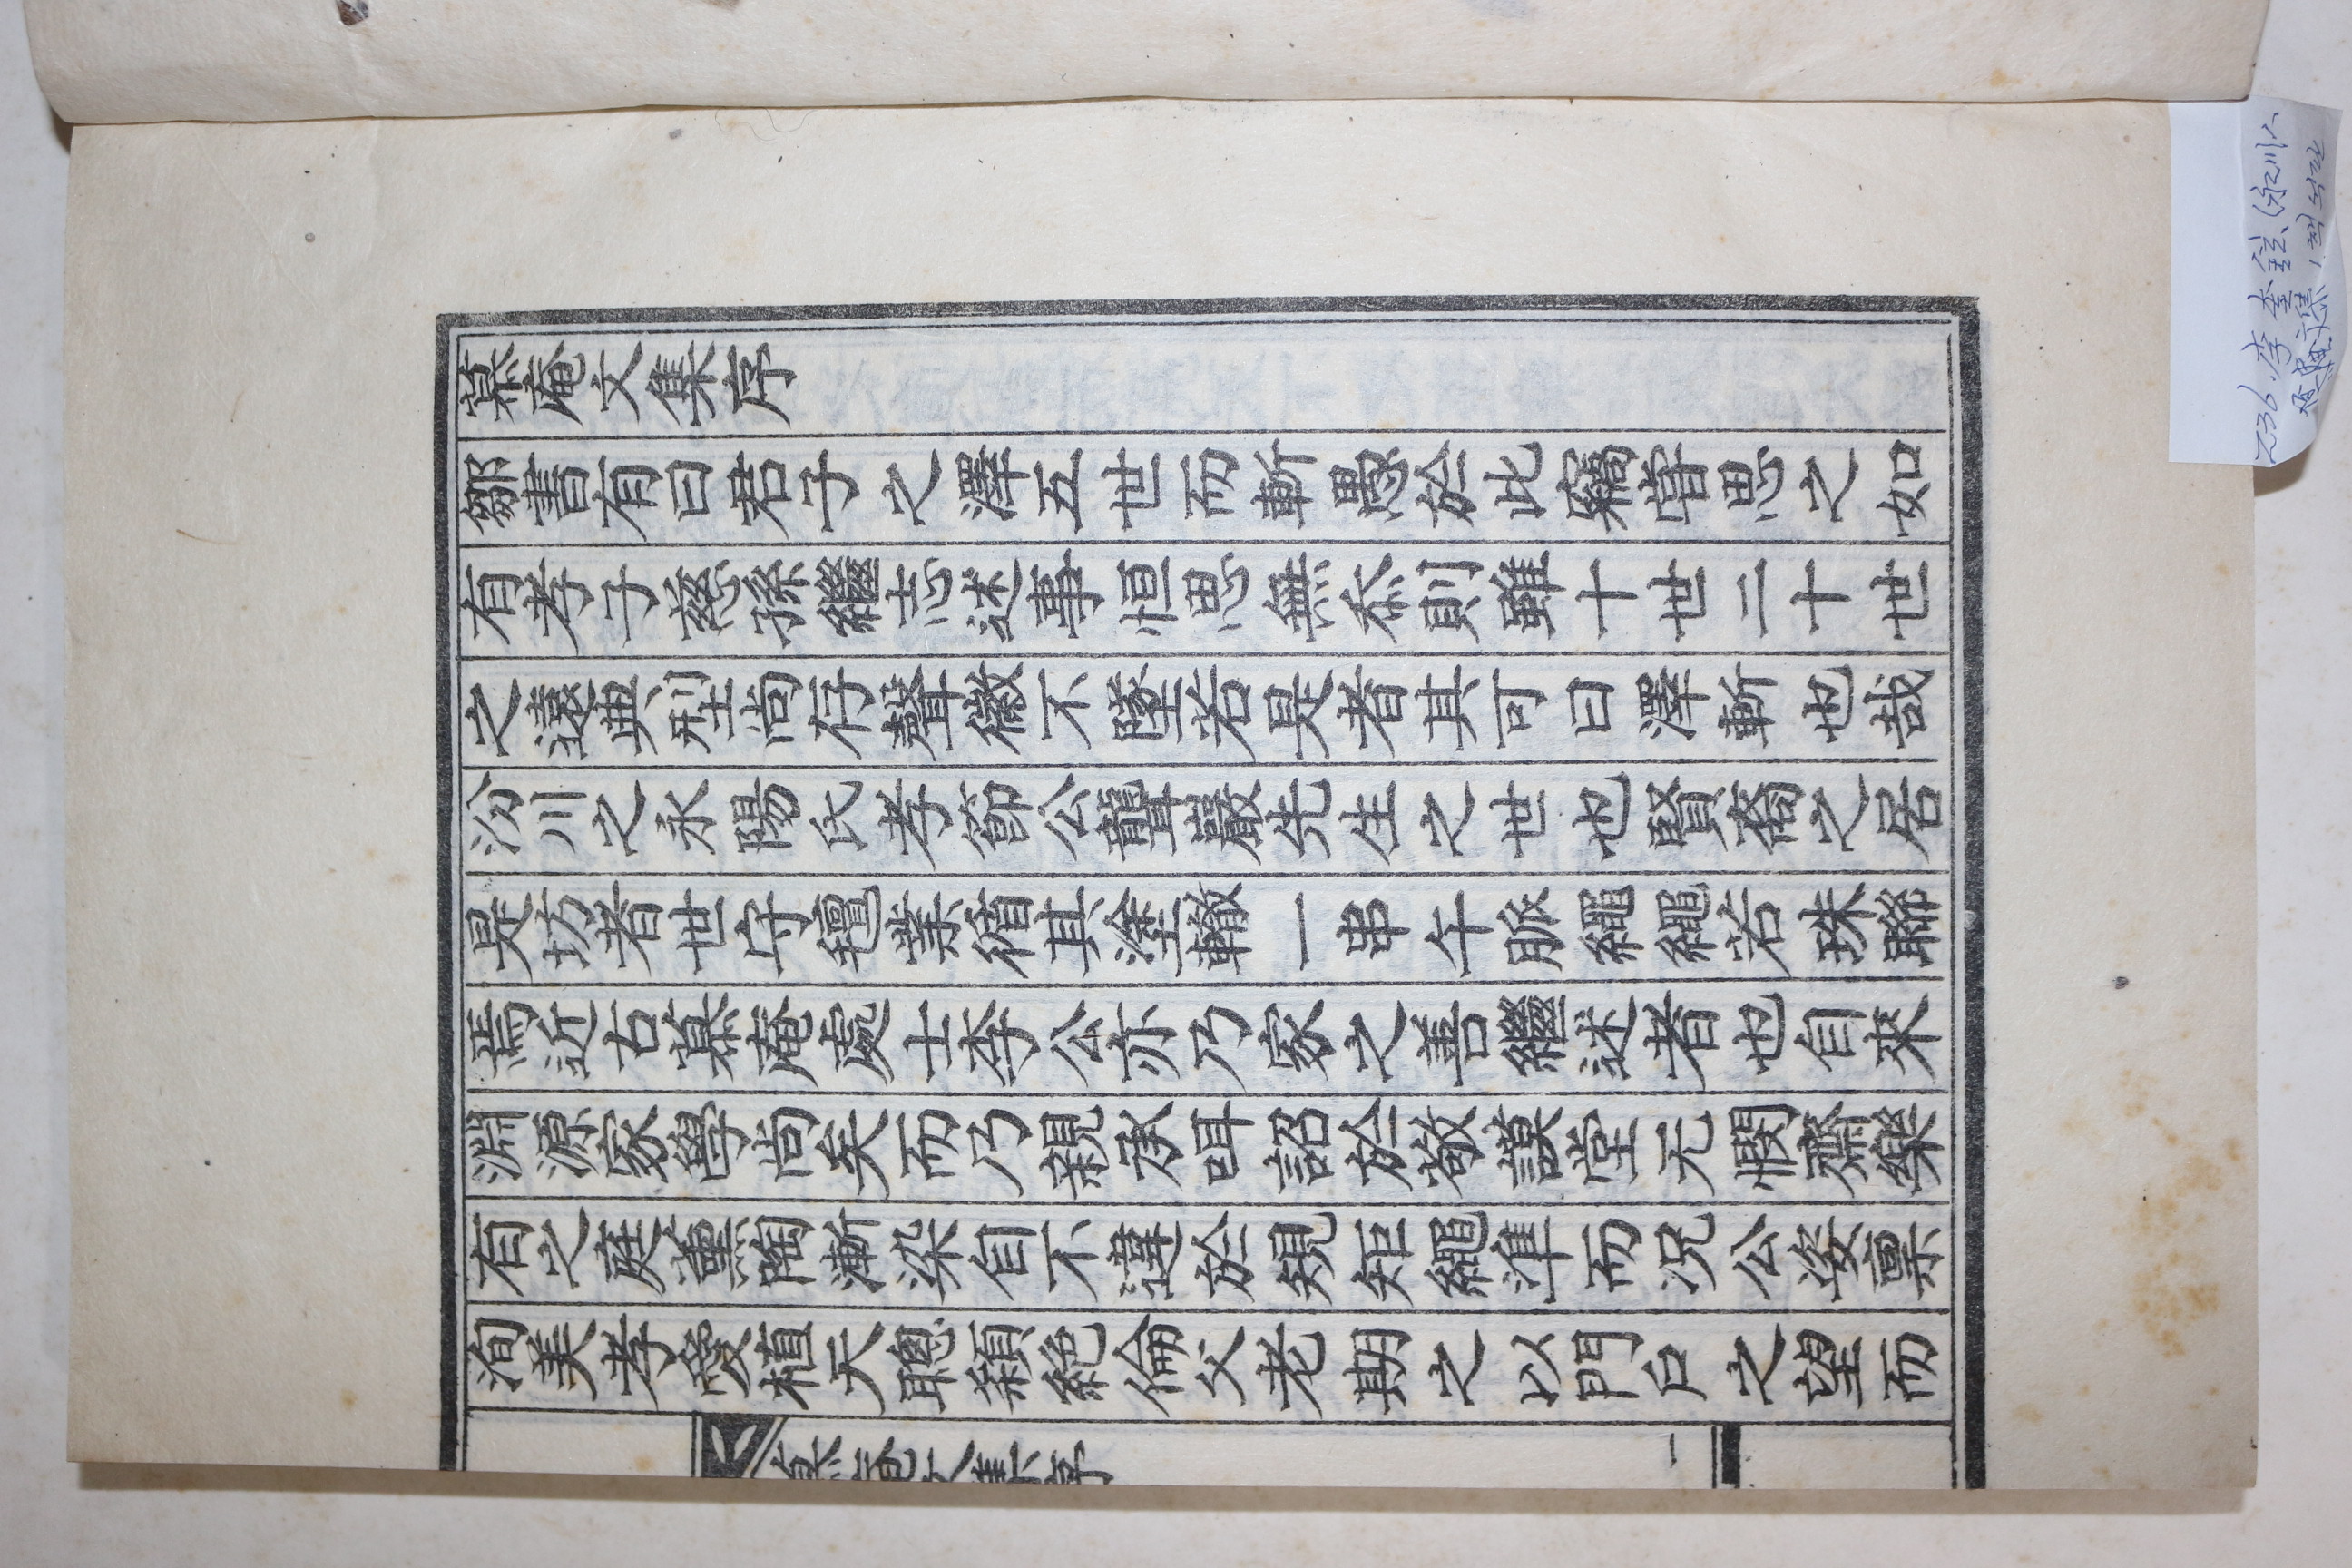 慕庵文集序
鄒書有曰君子之澤五世而斬愚於此竊嘗思之如
有孝子慈孫繼志述事恒思無忝則雖十世二十世
之遠典型尙存聲徽不墜若是者其可曰澤斬也哉
汾川之永陽氏孝節公聾巖先生之世也賢裔之居
是坊者世守氊業循其塗轍一串午脈繩繩若珠聯
焉近古慕庵處士李公亦乃家之善繼述者也自來
淵源家學尙矣而乃親承咡詔於敬謨堂无憫齋樂
有之庭薰陶漸染自不違於規矩繩準而况公姿禀
洵美孝愛植天聰潁絶倫父老期之以門戶之望而
慕庵文集序
一
236.李 (永川人
慕庵文集 1책 석판